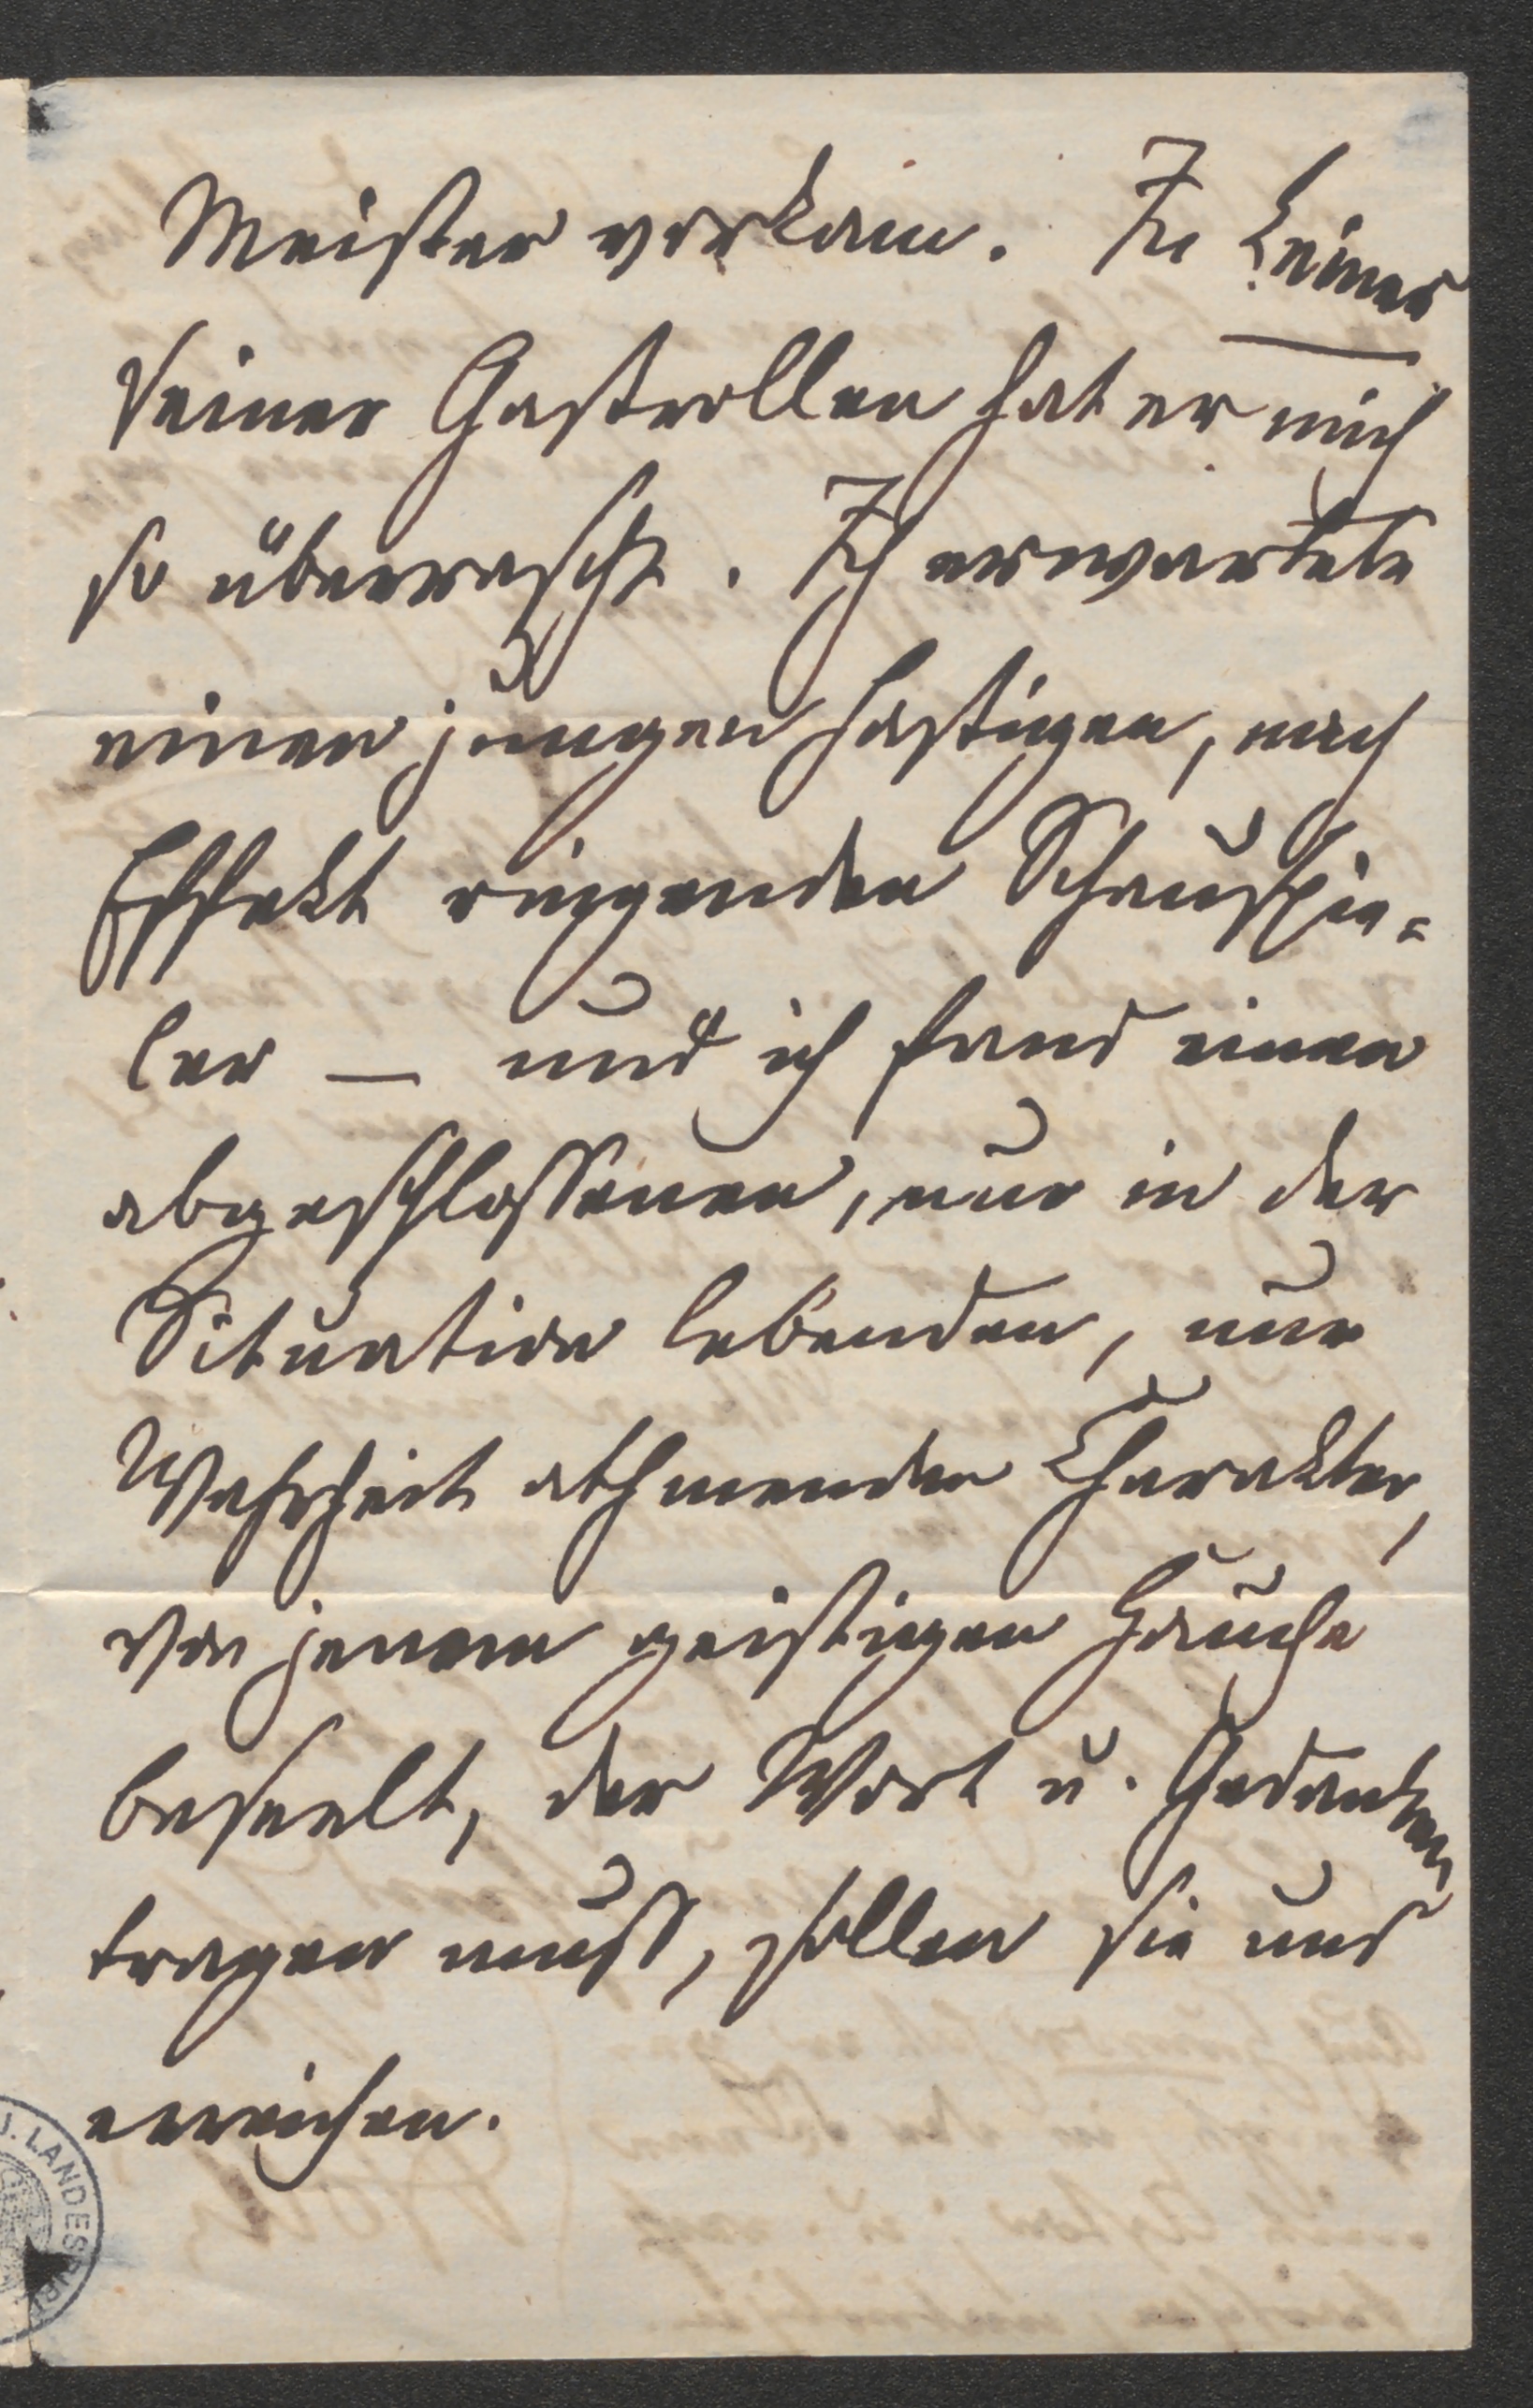 Meister vorkam. In keiner
seiner Gastrollen hat er mich
so überrascht. Ich erwartete
einen jungen hastigen, nach
Effekt ringenden Schauspie-
ler — und ich fand einen
abgeschlossenen, nur in der
Situation lebenden, nur
Wahrheit athmenden Charakter,
von jenem geistigen Hauche
beseelt, der Wort u. Gedanken
tragen muß, sollen sie uns
erreichen.
J. LANDES